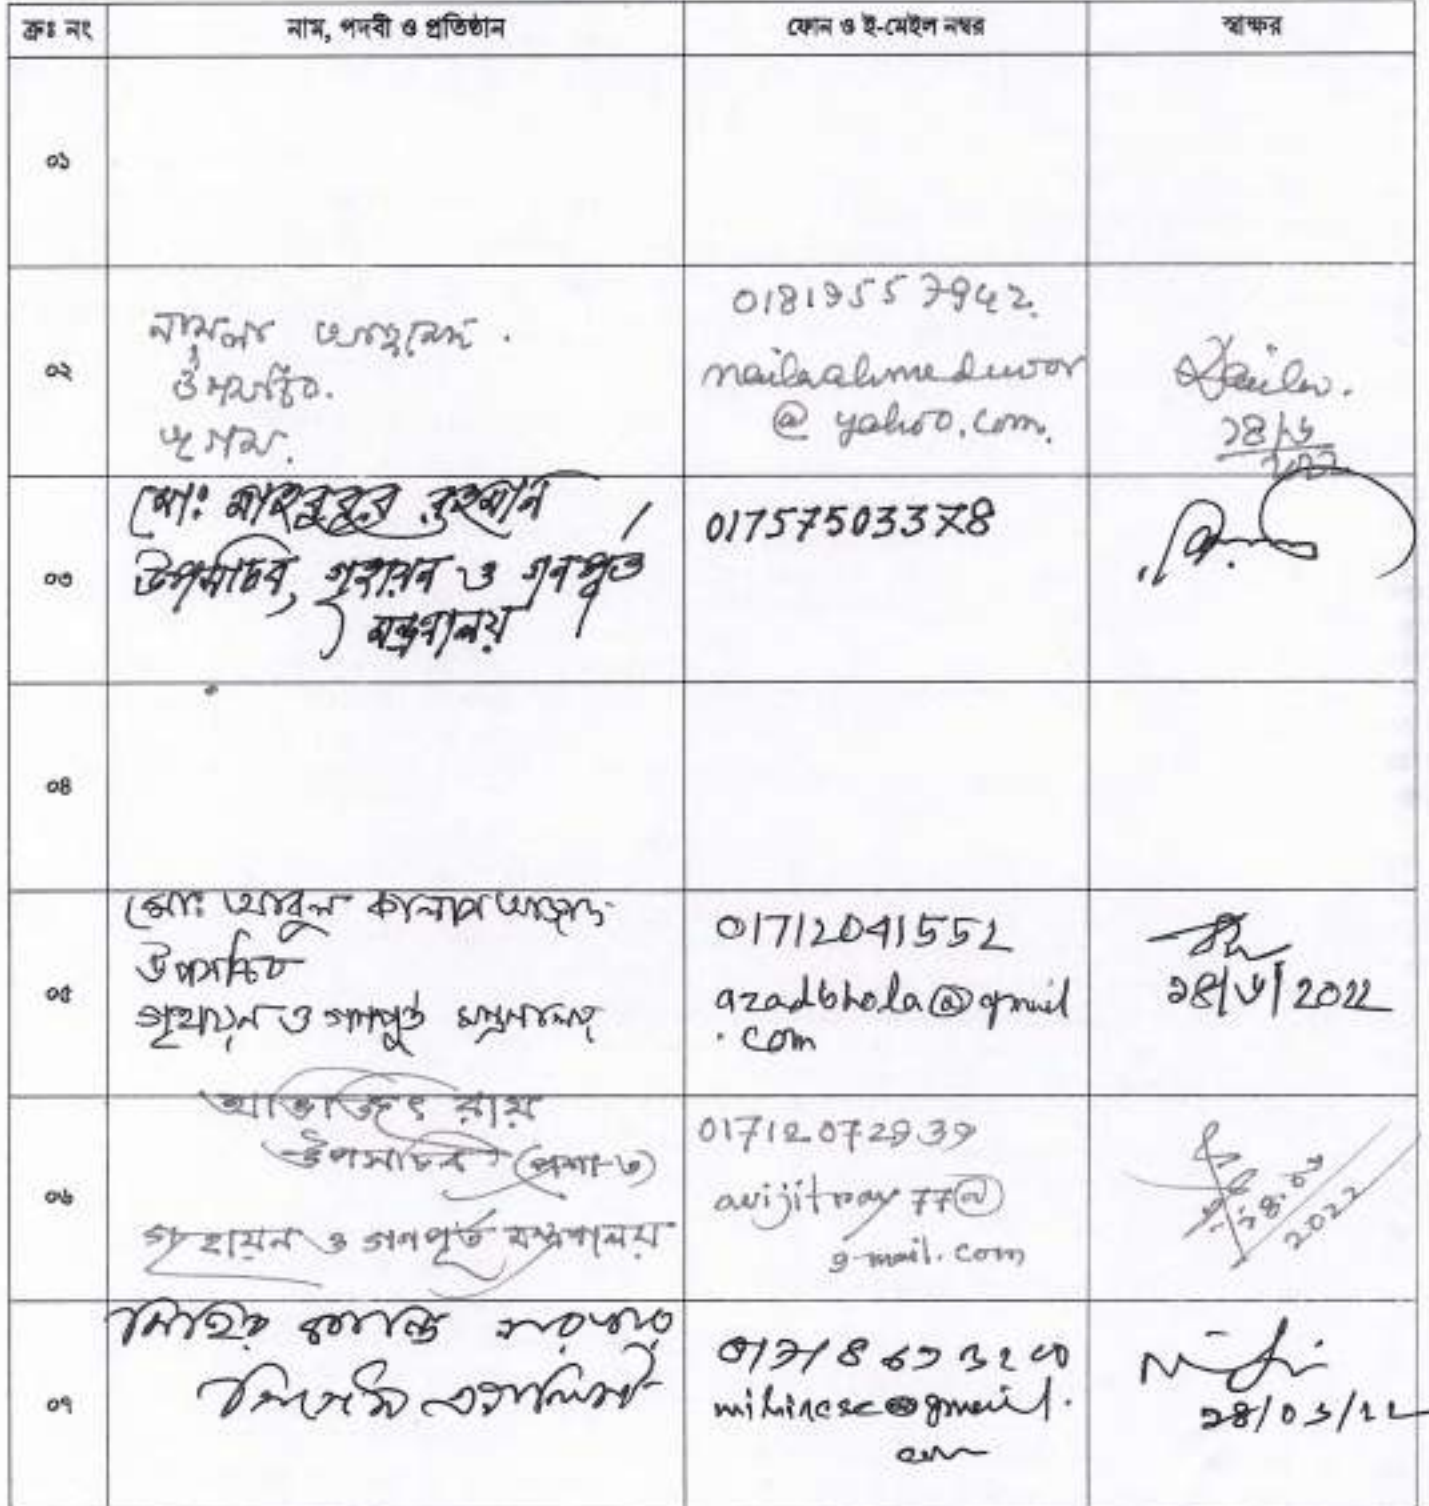 ক্রঃ নং নাম, পদবী ও প্রতিষ্ঠান ফোন ও ই-মেইল নম্বর স্বাক্ষর
০১
০২
নায়লা আহমেদ.
উপসচিব.
গৃগম.
nailaahmeduwor
@ yahoo.com.
০৩
মোঃ মাহবুবুর রহমান
উপসচিব, গৃহায়ন ও গণপূর্ত
মন্ত্রণালয়
01757503378
০৪
০৫
মোঃ আবুল কালাম আজাদ
উপসচিব
গৃহায়ন ও গণপূর্ত মন্ত্রণালয়
01712041552
azadbhola@gmail
.com
2022
০৬
অভিজিৎ রায়
উপসচিব (প্রশা-৬)
গৃহায়ন ও গণপূর্ত মন্ত্রণালয়
01712072939
avijitroy77@
g-mail.com
2022
০৭
মিহির কান্তি সরকার
সিস্টেম এনালিস্ট
gmail.
com